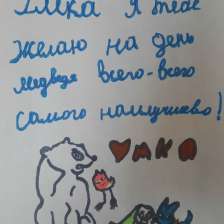 Умка я тебе
желаю на день
медведя всего-всего
самого наилучшево!
УМКА